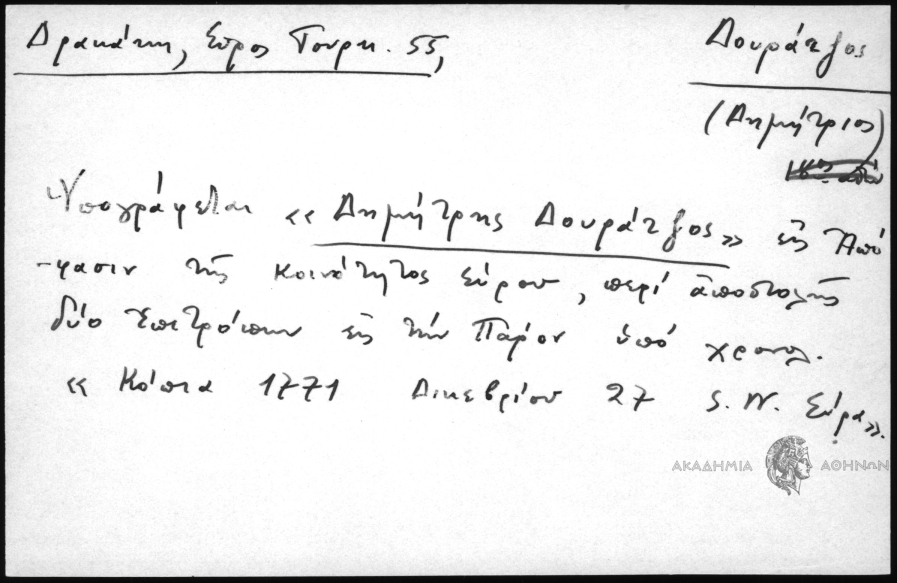 Δρακάκη, Σύρος Τουρκ. 55,
Δουράτζος
(Δημήτριος)
Ὑπογράφεται «Δημήτρης Δουράτζος» εἰς Ἀπό
-φασιν τῆς κοινότητος Σύρου, περί ἀποστολῆς
δύο Ἐπιτρόπων εἰς τήν Πάρον ὑπό χρονολ.
« Κόπια 1771 Δικεβρίου 27 S. N. Σύρα».
ΑΚΑΔΗΜΙΑ ΑΘΗΝΩΝ